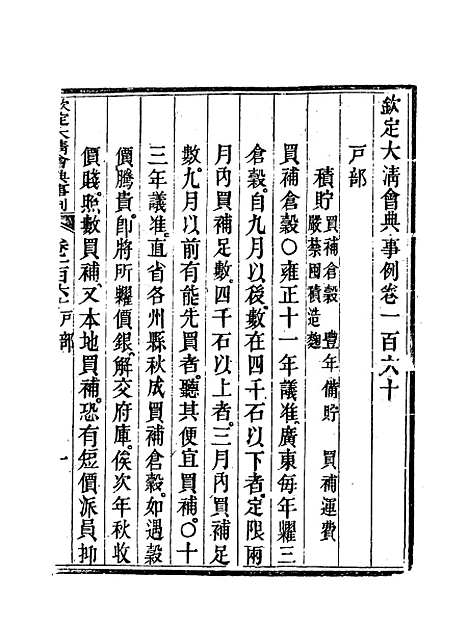 欽定大清會典事例卷一百六十
戸部
積貯買補倉穀 豐年備貯 買補運費
嚴禁囤積造麴
買補倉穀○雍正十一年議准廣東每年糶三
倉穀自九月以後數在四千石以下者定限兩
月內買補足數四千石以上者三月內買補足
數九月以前有能先買者聽其便宜買補○十
三年議准直省各州縣秋成買補倉穀如遇穀
價騰貴卽將所糶價銀解交府庫俟次年秋收
價賤照數買補又本地買補恐有短價派員抑
欽定大清會典事例 卷一百六十 戸部 一